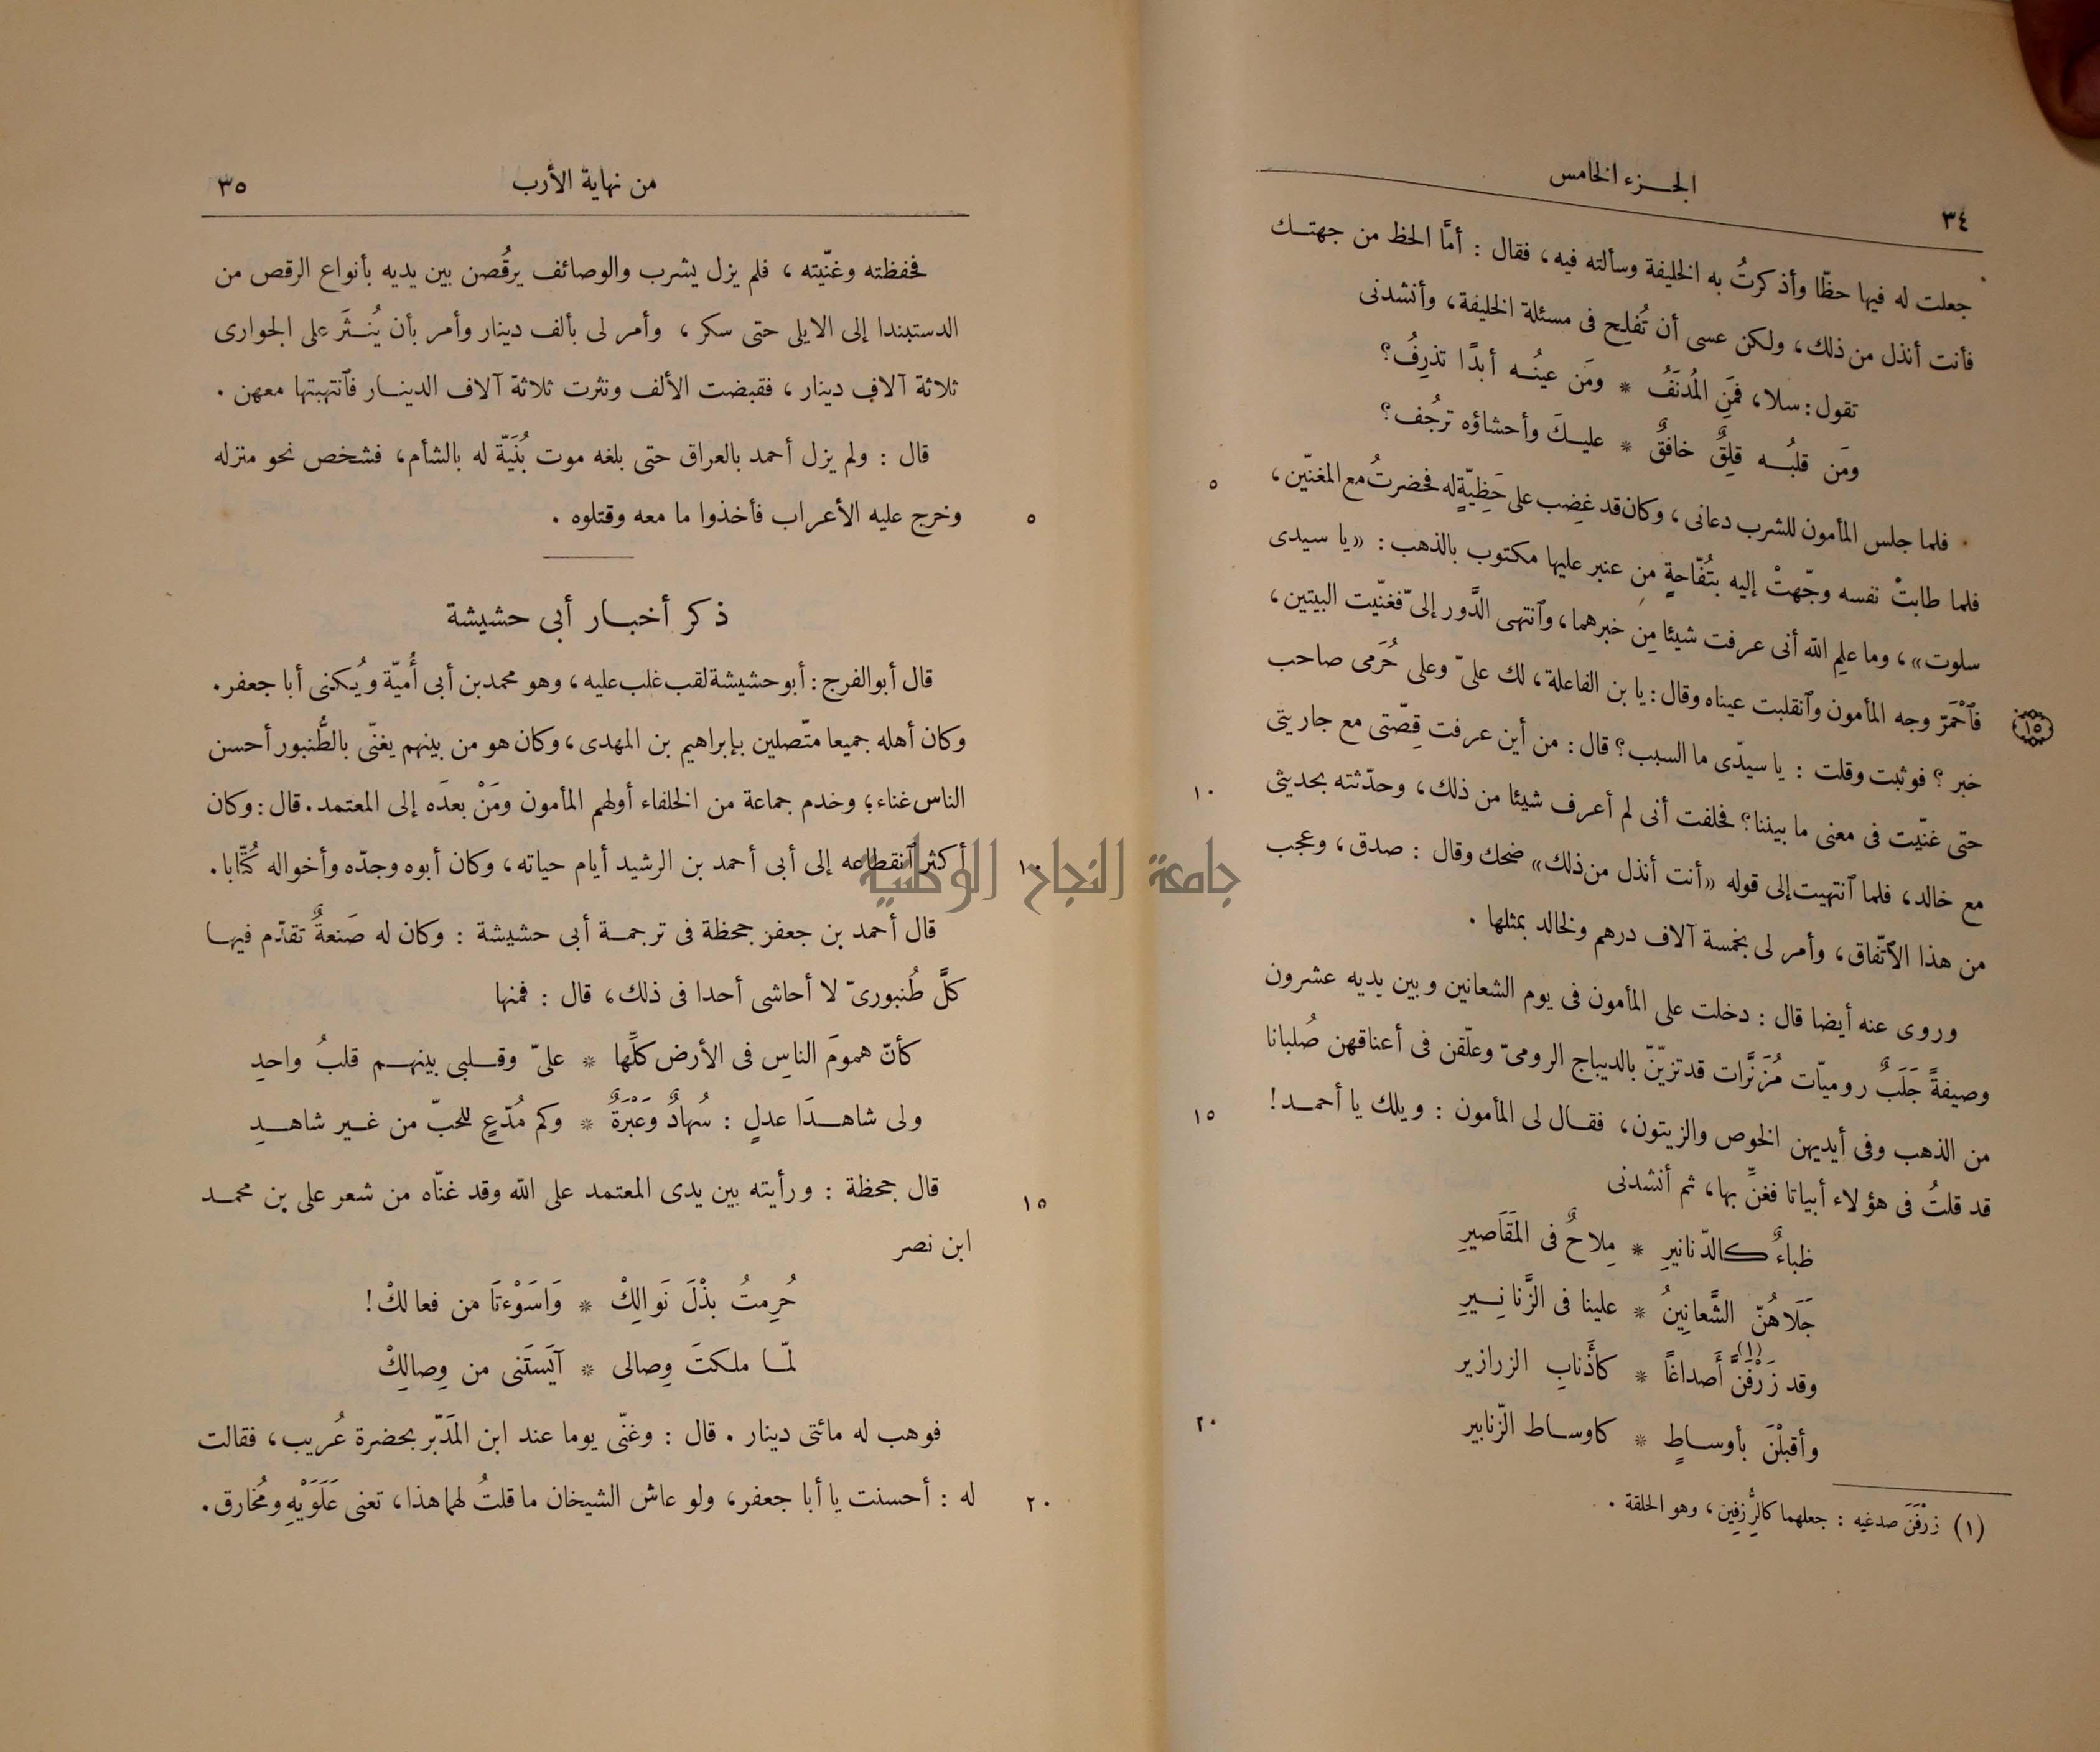 ٣٤
الجـزء الخامس
جعلت له فيها حظّا وأذكرتُ به الخليفة وسألته فيه، فقال : أمّا الحظ من جهتـك
فأنت أنذل من ذلك، ولكن عسى أن تُفلِح فى مسئلة الخليفة، وأنشدنى
تقول: سلا، فمَنِ المُدنَفُ * ومَن عينُـه أبدًا تذرِفُ؟
ومَن قلبُـه قلِقٌ خافقٌ * عليـكَ وأحشاؤه ترجُف؟
٥
فلما جلس المأمون للشرب دعانى، وكان قد غضِب على حَظِيّةٍ له فحضرتُ مع المغنّين،
فلما طابتْ نفسه وجّهتْ إليه بتُفّاحةٍ مِن عنبر عليها مكتوب بالذهب : «يا سيدى
سلوت»، وما علِم الله أنى عرفت شيئا مِن خبرهما، وٱنتهى الدَّور إلىّ فغنّيت البيتين،
فٱحْمَرّ وجه المأمون وٱنقلبت عيناه وقال: يا بن الفاعلة، لك علىّ وعلى حُرَمى صاحب
١٥
خبر؟ فوثبت وقلت : يا سيدّى ما السبب؟ قال: من أين عرفت قِصّتى مع جاريتى
١٠
حتى غنّيت فى معنى ما بيننا؟ فحلفت أنى لم أعرف شيئا من ذلك، وحدّثته بحديثى
مع خالد، فلما ٱنتهيت إلى قوله «أنت أنذل من ذلك» ضحك وقال : صدق، وعجب
من هذا الٱتّفاق، وأمر لى بخمسة آلاف درهم ولخالد بمثلها .
وروى عنه أيضا قال : دخلت على المأمون فى يوم الشعانين وبين يديه عشرون
وصيفةً جَلَبٌ روميّات مُزَنَّرات قد تزيّنّ بالديباج الرومىّ وعلّقن فى أعناقهن صُلبانا
١٥
من الذهب وفى أيديهن الخوص والزيتون، فقـال لى المأمون : ويلك يا أحمـد!
قد قلتُ فى هؤلاء أبياتا فغنِّ بها، ثم أنشدنى
ظباءٌ كالدّنانيرِ * مِلاحٌ فى المَقَاصيرِ
جَلَاهُنّ الشَّعانِينُ * علينا فى الزَّنانِـيرِ
وقد زَرْفَنَّ (١) أَصداغًا * كأَذنابِ الزرازير
٢٠
وأقبلْنَ بأوسـاطٍ * كاوسـاط الزّنابير
(١) زرْفَنَ صدغيه : جعلهما كالزِّرفِين، وهو الحلقة .
من نهاية الأرب
٣٥
فحفظته وغنّيته، فلم يزل يشرب والوصائف يرقُصن بين يديه بأنواع الرقص من
الدستبندا إلى الايلى حتى سكر، وأمر لى بألف دينار وأمر بأن يُنـثَر على الجوارى
ثلاثة آلاف دينار، فقبضت الألف ونثرت ثلاثة آلاف الدينـار فٱنتهبتها معهن .
قال : ولم يزل أحمد بالعراق حتى بلغه موت بُنَيّة له بالشأم، فشخص نحو منزله
٥
وخرج عليه الأعراب فأخذوا ما معه وقتلوه .
ذكر أخبـار أبى حشيشة
قال أبو الفرج : أبو حشيشة لقب غلب عليه، وهو محمد بن أبى أُميّة ويُكنى أبا جعفر.
وكان أهله جميعا متّصلين بإبراهيم بن المهدى، وكان هو من بينهم يغنّى بالطُّنبور أحسن
الناس غناء؛ وخدم جماعة من الخلفاء أولهم المأمون ومَنْ بعدَه إلى المعتمد. قال: وكان
١٠
أكثر ٱنقطاعه إلى أبى أحمد بن الرشيد أيام حياته، وكان أبوه وجدّه وأخواله كُتّابا.
جامعة النجاح الوطنية
قال أحمد بن جعفر جحظة فى ترجمـة أبى حشيشة : وكان له صَنعةٌ تقدّم فيهـا
كلَّ طُنبورىّ لا أحاشى أحدا فى ذلك، قال : فمنها
كأنّ همومَ الناسِ فى الأرض كلِّها * علىّ وقـلبى بينهـم قلبُ واحدِ
ولى شاهـدَا عدلٍ : سُهادٌ وَعَبْرَةٌ * وكم مُدّعٍ للحبّ من غـير شاهـدِ
١٥
قال جحظة : ورأيته بين يدى المعتمد على الله وقد غنّاه من شعر على بن محمـد
ابن نصر
حُرِمتُ بذْلَ نَوالِكْ * وَاسَوْءتَا من فعالكْ!
لمّـا ملكتَ وِصالى * آيَستَنى من وِصالِكْ
فوهب له مائتى دينار . قال : وغنّى يوما عند ابن المَدَبّر بحضرة عُريب، فقالت
٢٠
له : أحسنت يا أبا جعفر، ولو عاش الشيخان ما قلتُ لهما هذا، تعنى عَلَوَيْهِ ومُخارق.